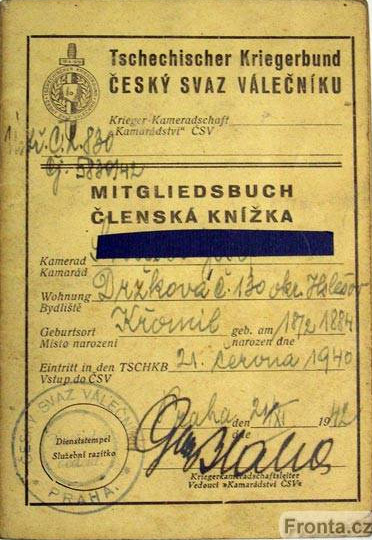 Tschechischer Kriegerbund
ČESKÝ SVAZ VÁLEČNÍKU
Krieger-Kameradschaft
"Kamarádství" ČSV
Čj. 5830/42
MITGLIEDSBUCH
ČLENSKÁ KNÍŽKA
Kamerad
Kamarád
Wohnung Držková č. 130 okr. Holešov
Bydliště
Geburtsort Křomil geb. am 18/2 1884
Místo narození narozen dne
Eintritt in den TSCHKB 21. června 1940
Vstup do ČSV
ČESKÝ SVAZ VÁLEČNÍKŮ
PRAHA.
Dienststempel
Služební razítko
Praha den 21/XI 1942
dne
Kriegerkameradschaftsleiter
Vedoucí »Kamarádství ČSV«
Fronta.cz